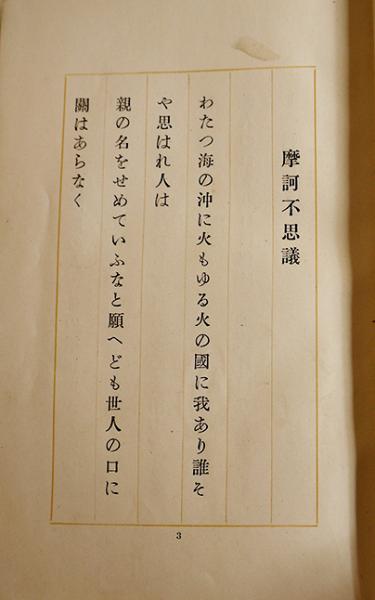 摩訶不思議
わたつ海の沖に火もゆる火の國に我あり誰そ
や思はれ人は
親の名をせめていふなと願へども世人の口に
關はあらなく
3